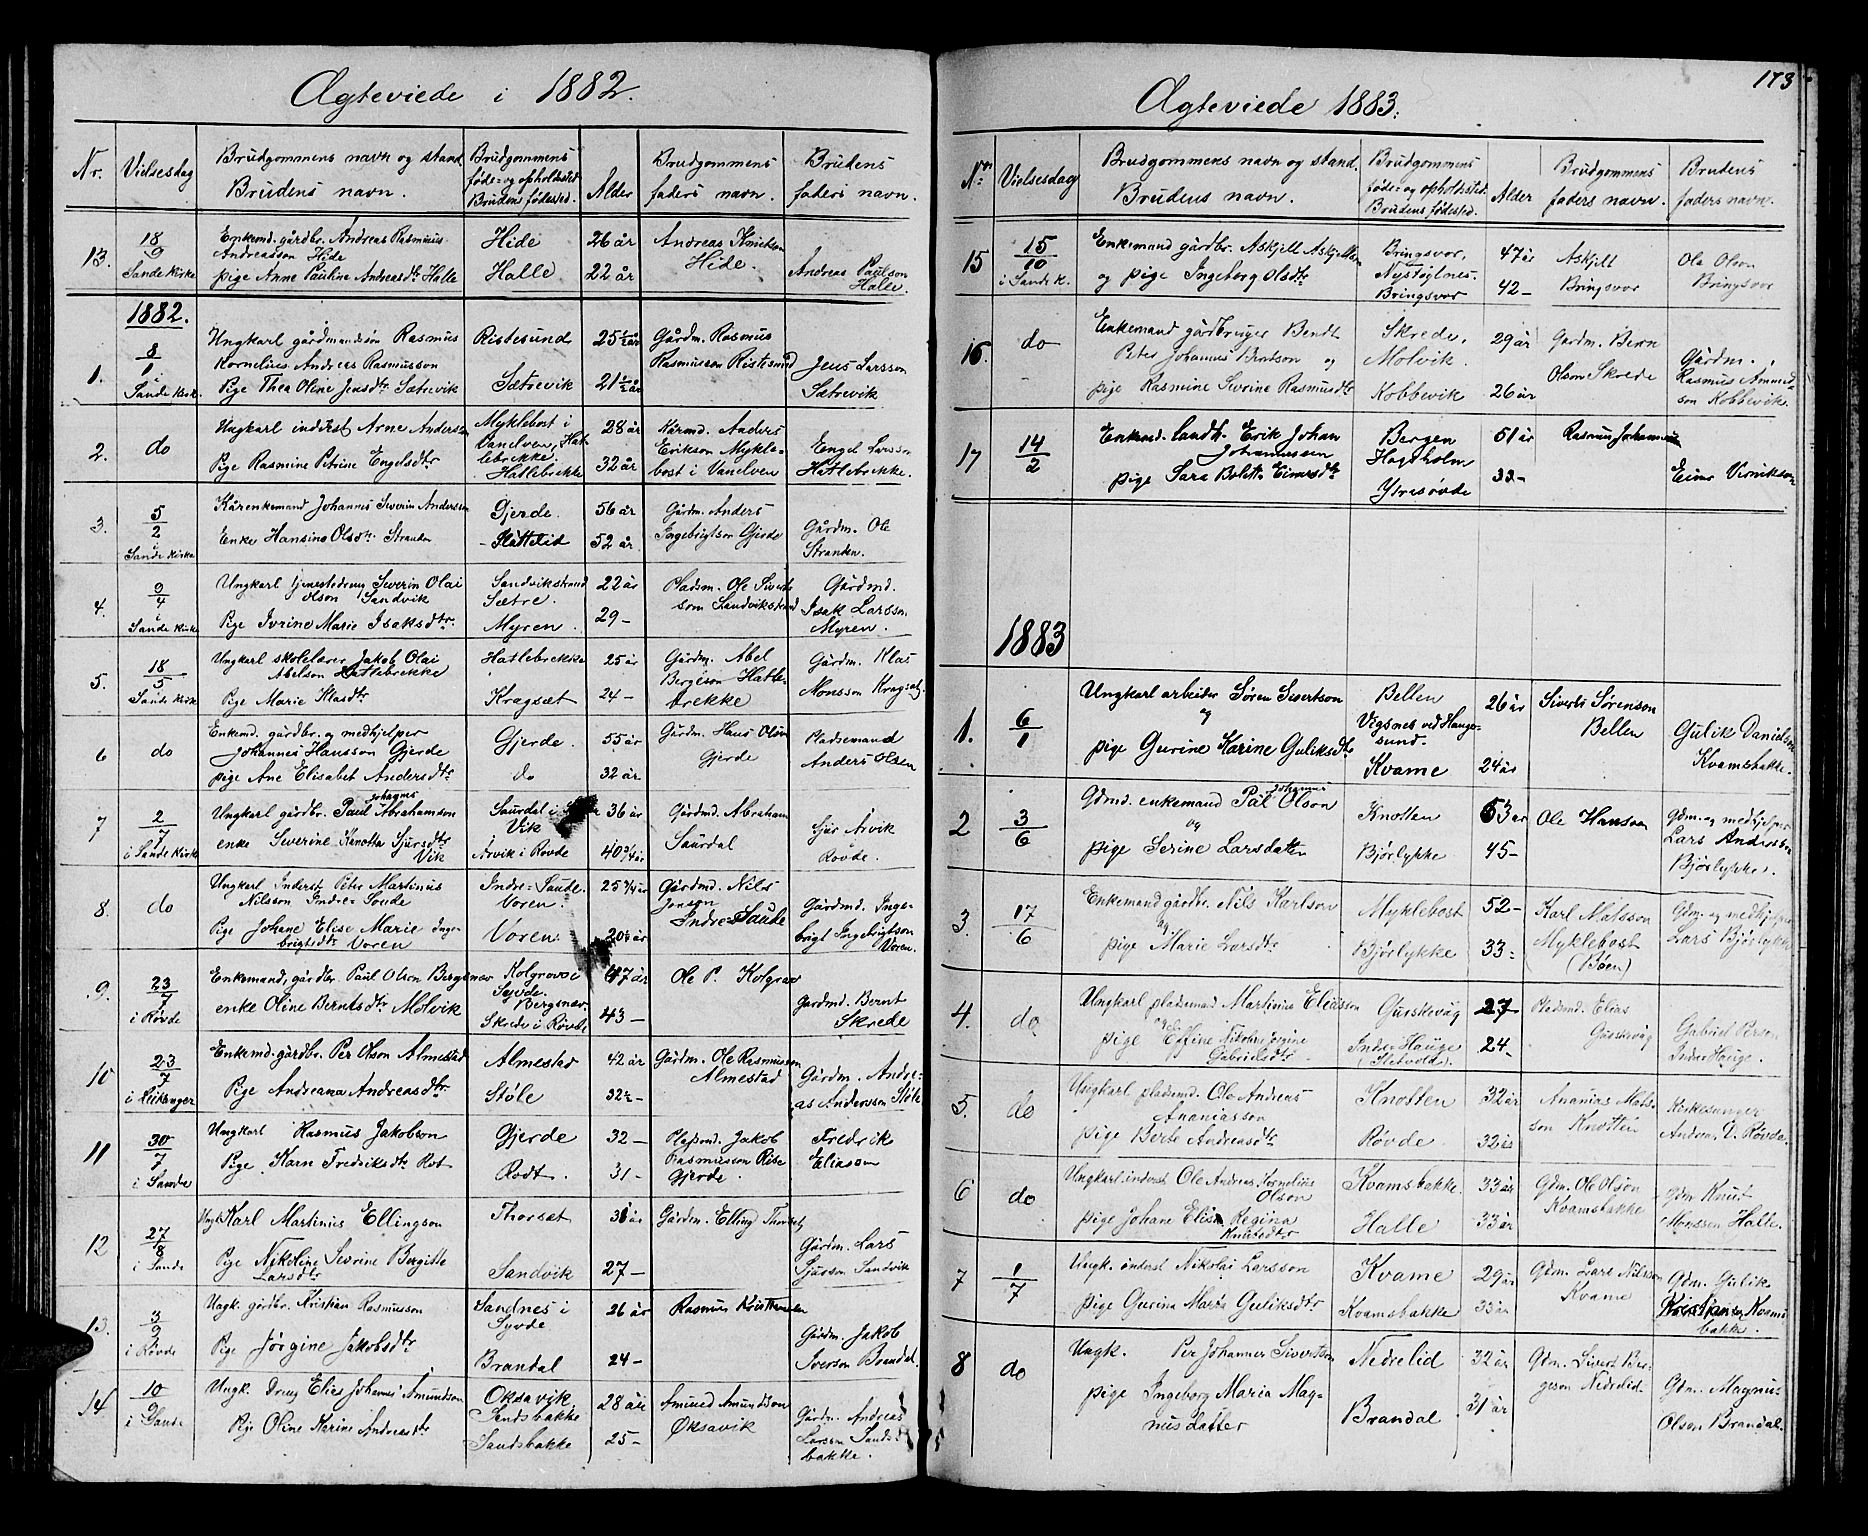 Ægteviede i 1882.
Nr. Vielsesdag Brudgommens navn og stand. Brudens navn. Brudgommens føde- og opholdssted. Brudens fødested. Alder Brudgommens faders navn. Brudens faders navn.
13. 18/9 Sande Kirke
Enkemd. gårdbr. Andreas Rasmus Andreasson Hide Hide 26 år Andreas Knutson Hide.
pige Anne Pauline Andreasdtr Halle Halle 22 år Andreas Paulson Halle.
1882.
1. 8/1 Sande Kirk.
Ungkarl gårdmandssøn Rasmus Kornelius Andreas Rasmusson Ristesund 25 1/2 år Gårdm. Rasmus Rasmusson Ristesund
Pige Thea Oline Jensdtr Sætrevik Sætrevik 21 1/2 år Jens Larsson Sætrevik
2. do
Ungkarl inderst Arne Anderssen Myklebost i Vanelven, Hatlebrekke 28 år Kårmd. Anders Erikson Myklebost i Vanelven
Pige Rasmine Petrine Engelsdtr Hatlebrekke 32 år Engel Larsson Hatlebrekke.
3. 5/2 i Sande Kirke
Kårenkemand Johannes Severin Anderssen Gjerde. 56 år Gårdm. Anders Ingebrigtson Gjerde
Enke Hansine Olsdtr. Stranden Slottelid 52 år Gårdm. Ole Stranden.
4. 9/4 i Sande Kirke
Ungkarl tjenestedreng Severin Olai Olson Sandvik Sandvikstrand Sætre. 22 år Pladsm. Ole Sivertsson Sandvikstrand
Pige Ivrine Marie Isaksdtr. Myren. 29 - Gårdmd. Isak Larsson Myren.
5. 18/5 Sande Kirk
Ungkarl skolelærer Jakob Olai Abelson Hatlebrekke Hatlebrekke 25 år Gårdm. Abel Bergeson Hatlebrekke
Pige Marie Klasdtr Kragsæt 24 - Gårdm. Klas Monsson Kragsæt.
6 do
Enkemd. gårdbr. og medhjelper Johannes Hansson Gjerde Gjerde. 55 år Gårdm. Hans Olson Gjerde
pige Ane Elisabet Andersdtr do 32 år. Pladsemand Anders Olsen
7 2/7 i Sande Kirk
Ungkarl gårdbr. Paul Johannes Abrahamson Saurdal i Vik 36 år Gårdmd. Abraham Saurdal
enke Severine Sjursdtr Vik Årvik i Rovde 40 3/4 år. Sjur Årvik Rovde.
8. do
Ungkarl Inderst Peter Martinus Nilsson Indre-Sande Indre-Sande. Voren. 25 3/4 år Gårdmd. Nils Jonson Indre-Sande
Pige Johane Elise Marie Ingebrigtsdtr Voren Voren. 20 1/2 år Gårdmd. Ingebrigt Ingebrigtson Voren.
9. 23/7 i Røvde
Enkemand, gårdbr. Paul Olson Bergsnæv Kolgrov i Syvde. Bergsnæv 47 år Ole P. Kolgrov
enke Oline Berntsdtr Molvik Skrede i Røvde 43 - Gårdmd. Bernt Skrede
10 23/7 i Leikanger
Enkemd. gårdbr. Per Olson Almestad Almestad 42 år Gårdm. Ole Rasmusson Almestad
Pige Andreana Andreasdtr Støle 32 1/2 - Gårdm. Andreas Andersson Støle
11 30/7 i Sande
Ungkarl Rasmus Jakobson Gjerde 32 - Plassmd. Jakob Rasmusson Rise Gjerde.
Pige Karn Fredriksdtr Rot Rodt. 31 - Fredrik Eliasson
12 27/8 i Sande
Ungk. Karl Martinus Ellingson Thorset 31 år Gårdm. Elling Thorset
Pige Nikoline Sevrine Bergitte Larsdtr Sandvik 27 - Gårdm. Lars Sjurson Sandvik
13. 3/9 i Røvde
Ungk. gårdbr. Kristian Rasmusson Sandnes i Syvde 26 år Rasmus Kristiansen
Pige Jørgine Jakobsdtr Brandal 24 - Gårdm. Jakob Iverson Brandal.
14 10/9 i Sande
Ungk. Dreng Elies Johannes Amundson Oksavik. Sandsbakke 28 år Amund Amundson Øksavik
Pige Oline Karine Andreasdtr Sandsbakke 25 - Gårdm. Andreas Larsson Sandsbakke.
Ægteviede 1883.
173
Nr. Vielsesdag Brudgommens navn og stand. Brudens navn. Brudgommens føde- og opholdssted. Brudens fødested. Alder Brudgommens faders navn. Brudens faders navn.
15 15/10 i Sande K.
Enkemand gårdbr. Askjell Askjellsen Bringsvor, Nystøylnes. 47 år Askjell Bringsvor
og pige Ingeborg Olsdtr Bringsvor 42 - Ole Olson Bringsvor
16. do
Enkemand gårdbruger Bendt Peter Johannes Berntson og Skrede, Molvik 29 år Gårdm. Bern Olson Skrede
pige Rasmine Sivrine Rasmusdtr Kobbevik 26 år Gårdm. Rasmus Ammodson Kobbevik.
17 14/2
Enkemd. landh. Erik Johan Johannessen Bergen Hagsholm 51 år Rasmus Johannessen
pige Sara Bolette Einersdtr Ytrasövde 33 -
1883
1. 6/1
Ungkarl arbeider Søren Sivertson og Bellen Vigsnes ved Haugesund. 26 år Siverts Sörenson Bellen
pige Gurine Karine Guliksdtr Kvame 24 år Gulik Danielson Kvamsbakke.
2 3/6
Gdmd. enkemand Pål Johannes Olson og Knotten 53 år Ole Hanson
pige Serine Larsdatter Bjørlykke 45 - Gdm. og medhjelper Lars Andersen Bjørlykke.
3. 17/6
Enkemand gårdbr. Nils Karlson og Myklebost 52 - Karl Matsson Myklebost (Bøen)
pige Marie Larsdtr Bjørlykke 33 - Gdm. og medhjelper Lars Bjørlykke
4. do
Ungkarl pladsemand Martinus Eliasson og Gurskevåg 27 Pladsmd. Elias Gurskevåg
pige Effine Nikoline Jørgine Gabrielsdtr Indre Hauge (Sletvolde). 24 - Gabriel Olsen Indre Hauge.
5. do
Ungkarl pladsemd. Ole Andreas Ananiasson Knotten 32 år Ananias Matsson Knotten
pige Berte Andreasdtr Røvde 32 år Kirkesanger Andreas D. Røvde
6 do
Ungkarl inderst Ole Andreas Kornelius Olson Kvamsbakke. 33 år Gdm. Ole Olson Kvamsbakke
pige Johane Elise Regina Knutsdtr Halle 33 år Gdm Knud Monssen Halle.
7 1/7
Ungk. inderst Nikolai Larsson Kvame 29 år Gdm. Lars Nilsson Kvame
pige Gurina Maria Guliksdtr Kvamsbakke 33 år Gdm. Gulik Kristiansen Kvamsbakke.
8 do
Ungk. Per Johannes Sivertson Nedrelid 32 år Gdm. Sivert Bergeson Nedrelid.
pige Ingeborg Maria Magnusdatter Brandal 31 år Gdm. Magnus Olson Brandal.